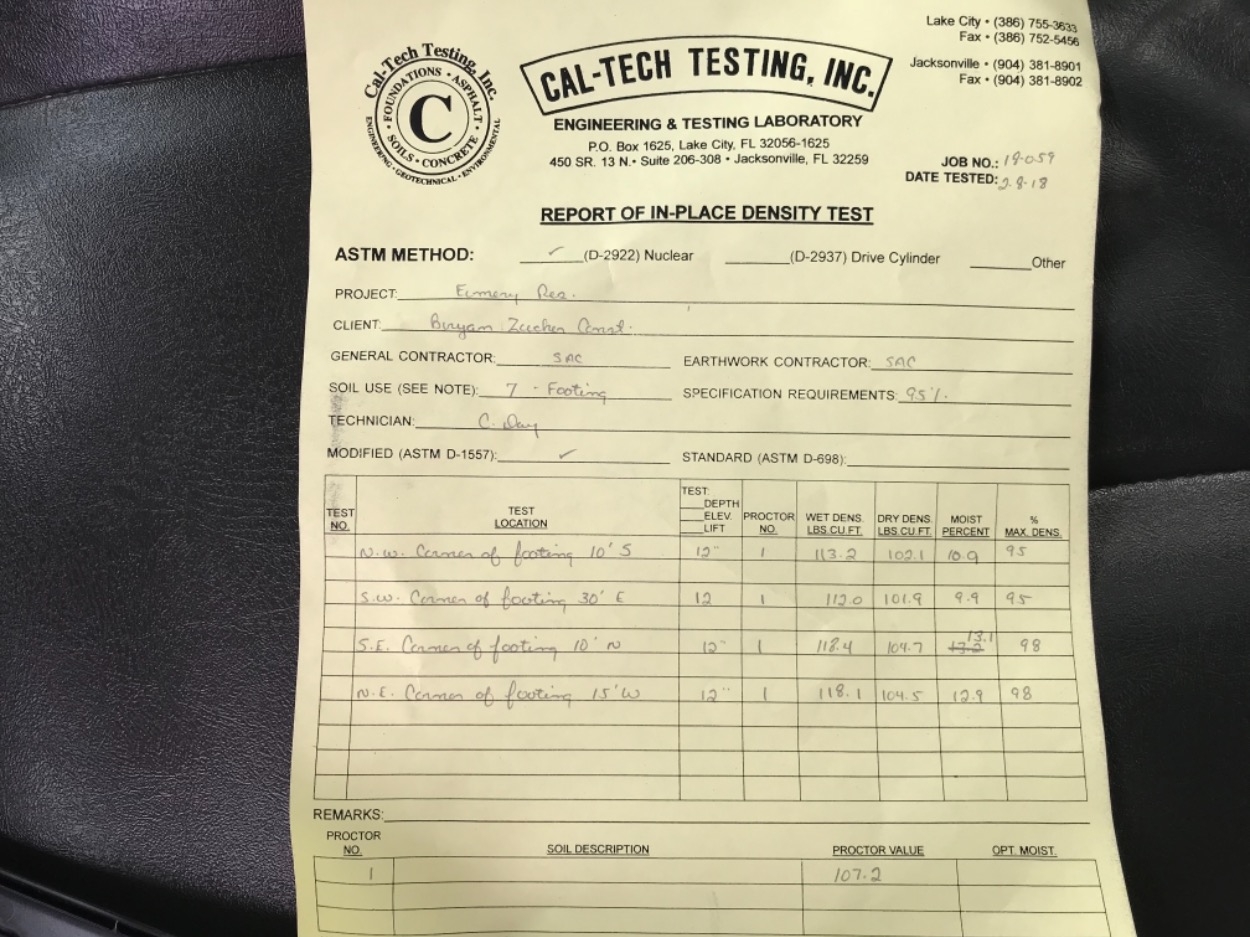 Lake City • (386) 755-3633
Fax • (386) 752-5456
Jacksonville • (904) 381-8901
Fax • (904) 381-8902
Cal-Tech Testing, Inc.
• FOUNDATIONS • ASPHALT • SOILS • CONCRETE
C
ENGINEERING • GEOTECHNICAL • ENVIRONMENTAL
CAL-TECH TESTING, INC.
ENGINEERING & TESTING LABORATORY
P.O. Box 1625, Lake City, FL 32056-1625
450 SR. 13 N. • Suite 206-308 • Jacksonville, FL 32259
JOB NO.: 19-059
DATE TESTED: 2-8-18
REPORT OF IN-PLACE DENSITY TEST
ASTM METHOD: ✓ (D-2922) Nuclear (D-2937) Drive Cylinder Other
PROJECT: Res.
CLIENT: Const.
GENERAL CONTRACTOR: SAC EARTHWORK CONTRACTOR: SAC
SOIL USE (SEE NOTE): 7 - Footing SPECIFICATION REQUIREMENTS: 95%
TECHNICIAN: C. Day
MODIFIED (ASTM D-1557): ✓ STANDARD (ASTM D-698):
TEST NO. TEST LOCATION TEST: DEPTH ELEV. LIFT PROCTOR NO. WET DENS. LBS.CU.FT. DRY DENS. LBS.CU.FT. MOIST PERCENT % MAX. DENS.
N.W. Corner of footing 10' S 12" 1 113.2 102.1 10.9 95
S.W. Corner of footing 30' E 12 1 112.0 101.9 9.9 95
S.E. Corner of footing 10' N 12" 1 118.4 104.7 13.2 13.1 98
N.E. Corner of footing 15' W 12" 1 118.1 104.5 12.9 98
REMARKS:
PROCTOR NO. SOIL DESCRIPTION PROCTOR VALUE OPT. MOIST.
1 107.2